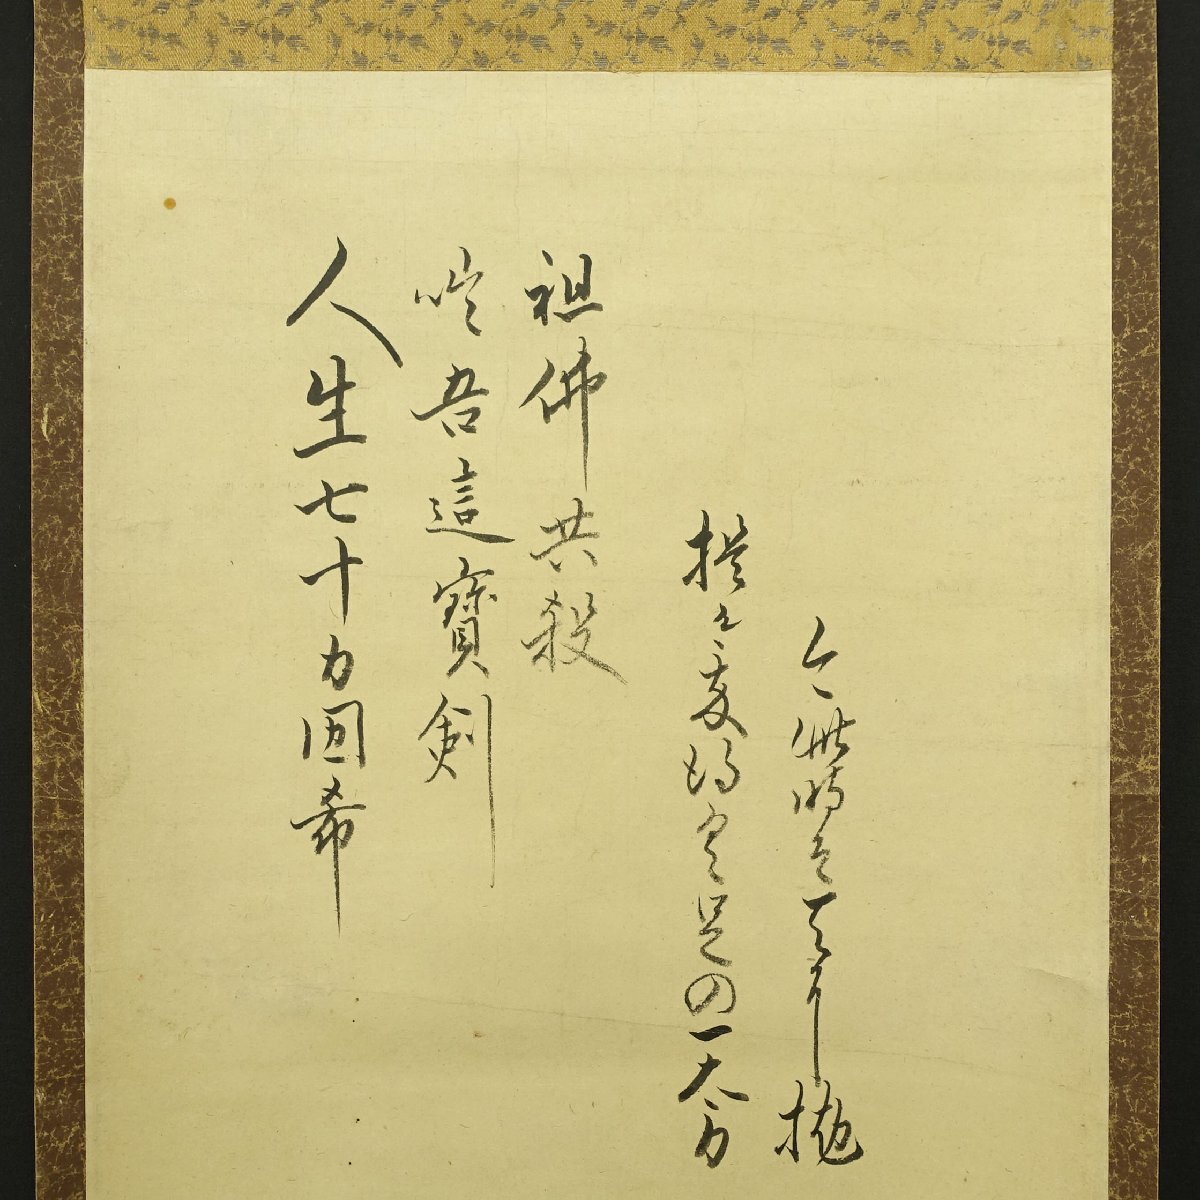 人生七十力囲希
咄吾這寶剣
祖佛共殺
提る我得具足の一太刀
今此時そ天に抛